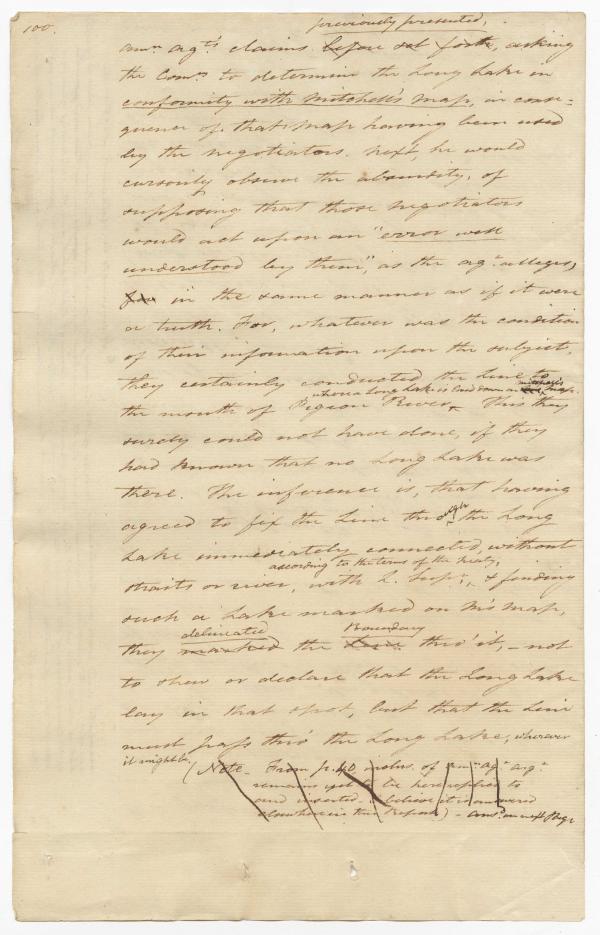 100.
previously presented,
amn. agts. claims before set forth, asking
the Comrs. to determine the Long Lake in
conformity with Mitchell's map, in conse=
quence of that map having been used
by the negotiators. Next, he would
cursorily observe the absurdity, of
supposing that those negotiators
would act upon an "error well
understood by them", as the agt. alleges,
in the same manner as if it were
a truth. For, whatever was the condition
of their information upon the subject,
they certainly conducted the Line to
where a Long Lake is laid down on Mitchell's map.
the mouth of Pigeon River. This they
surely could not have done, if they
had known that no Long Lake was
there. The inference is, that having
agreed to fix the Line through the Long
Lake immediately connected, without
according to the terms of the Treaty,
straits or river, with L. Supr., & finding
such a Lake marked on his map,
delineated Boundary
they marked the Line thro' it, - not
to shew or declare that the Long Lake
lay in that spot, but that the Line
must pass thro' the Long Lake, wherever
it might be.
(Note - From p. 40 of amn. agts. argt.
remains yet to be here replied to
and inserted - I believe it is answered
elsewhere in this Report) - ansd. on next Page